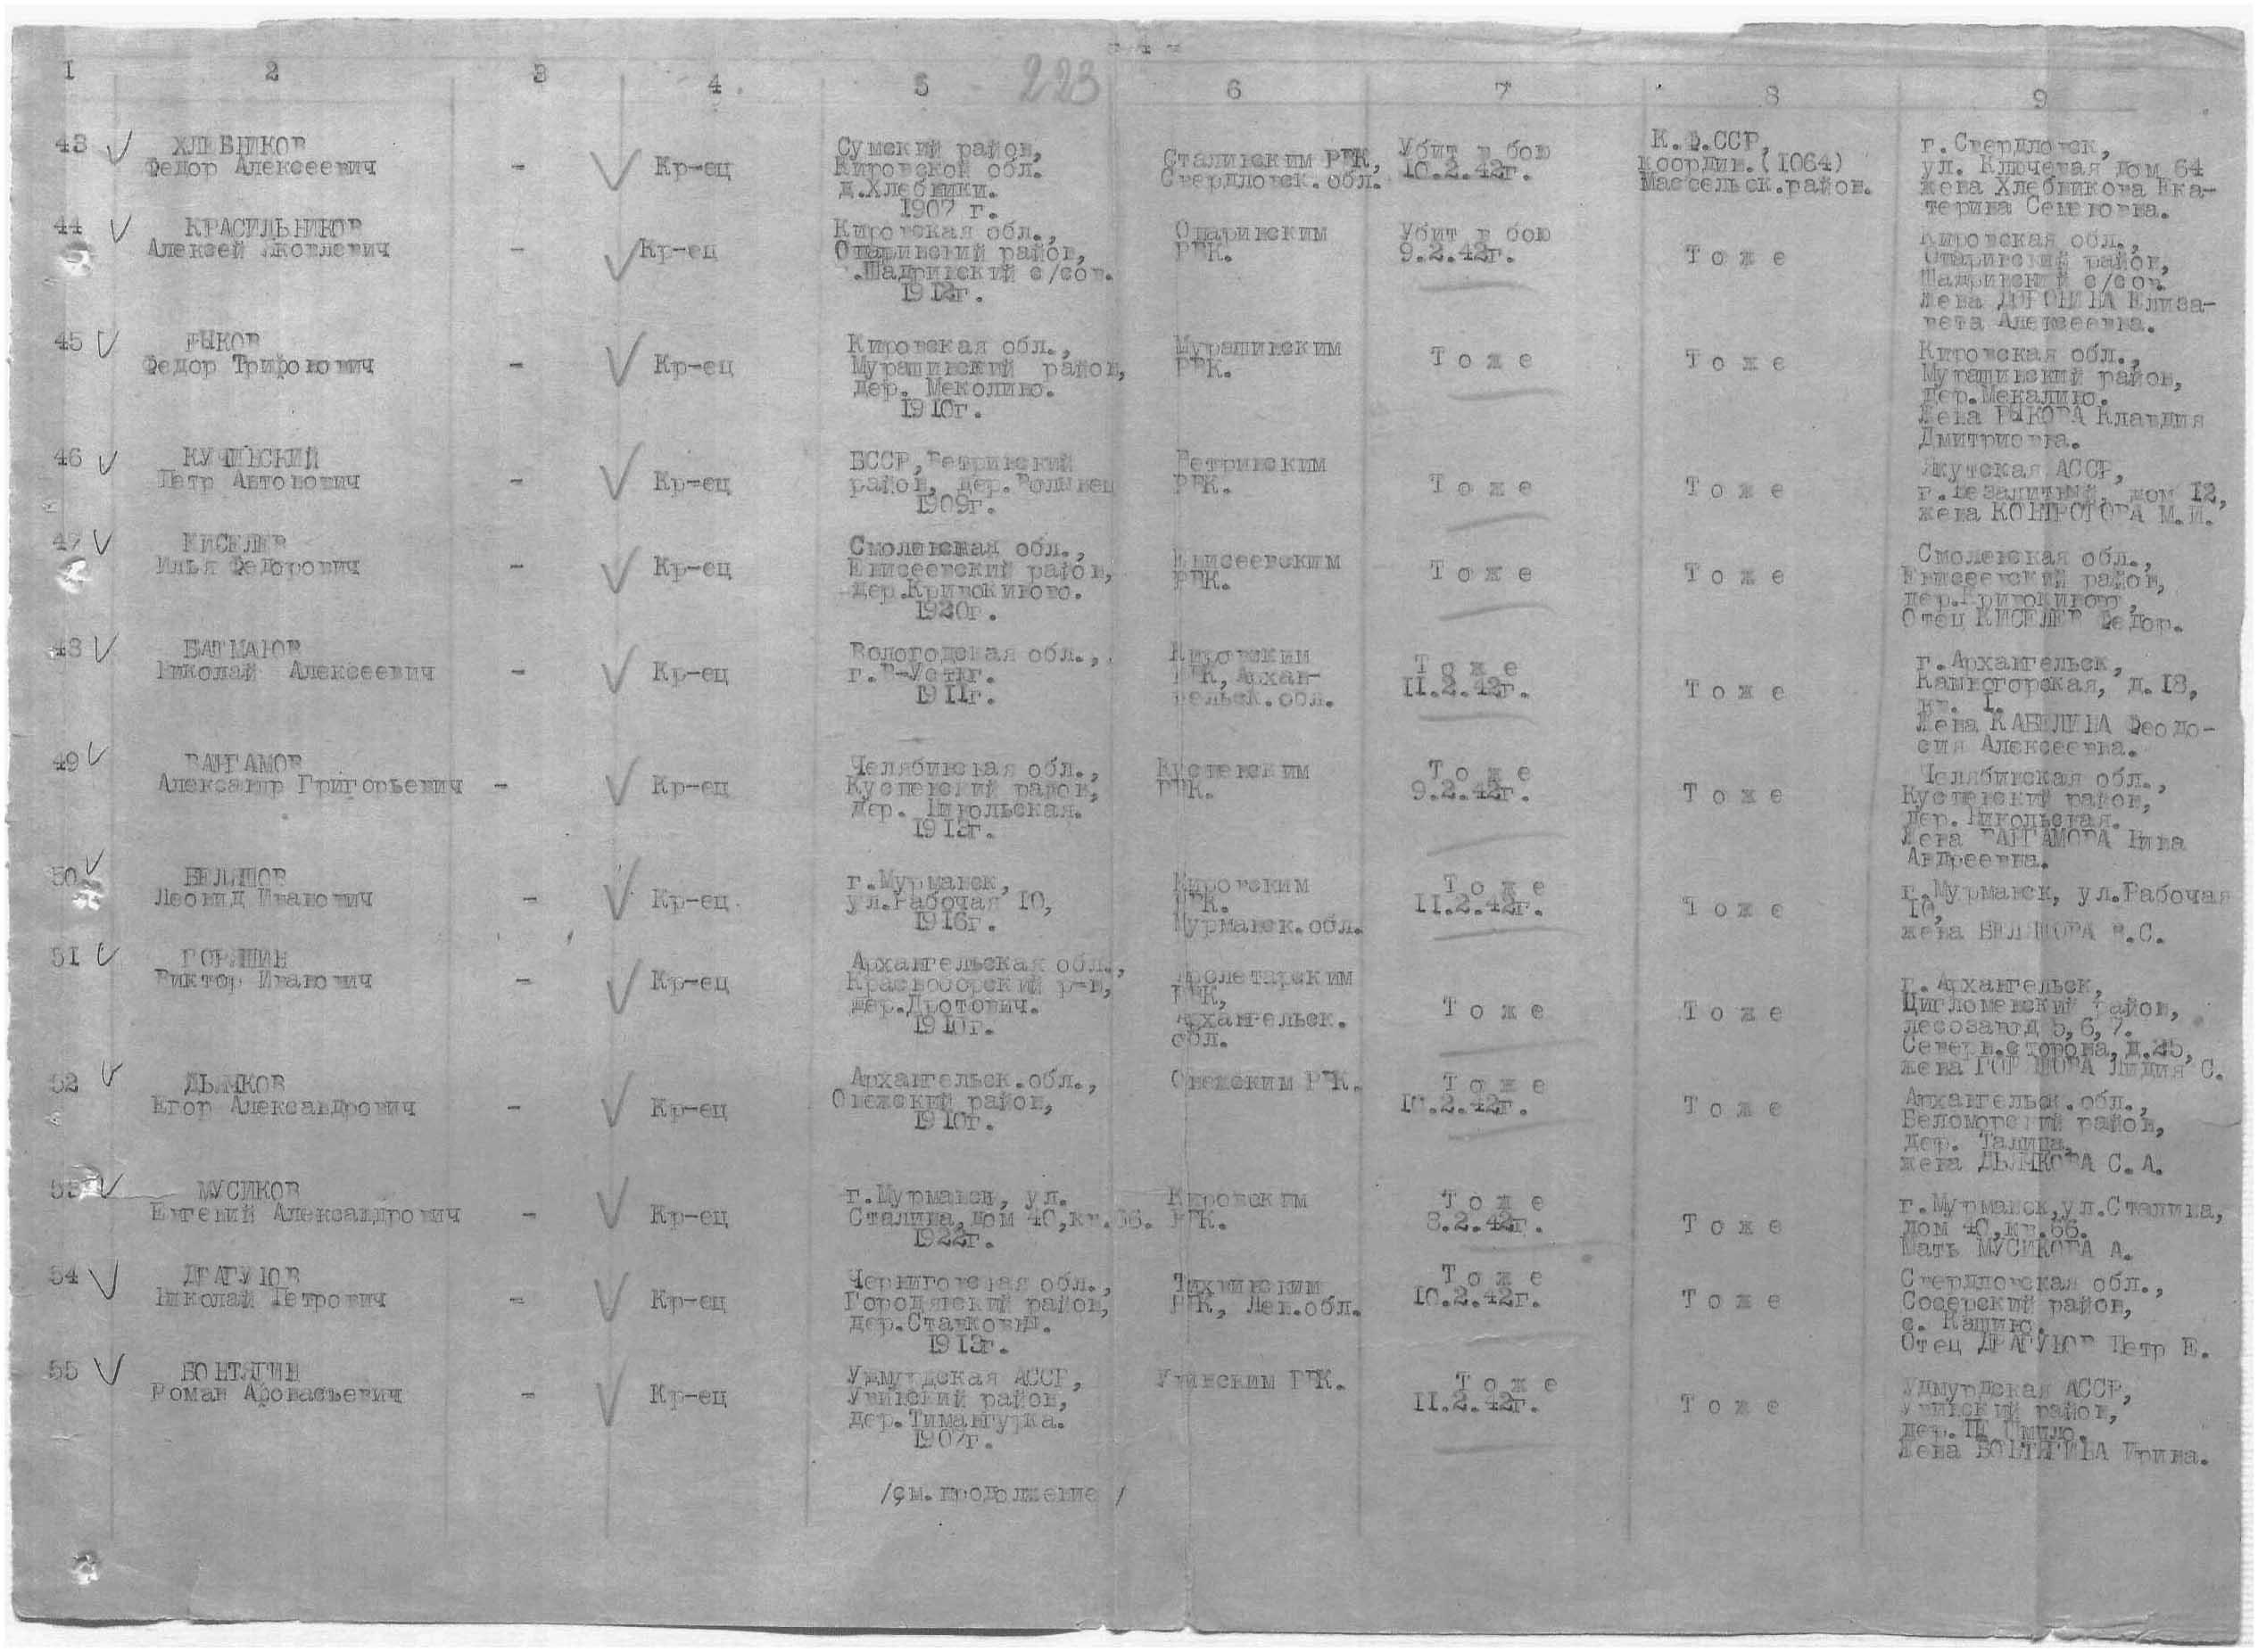 223
1 2 3 4 5 6 7 8 9
43 ХЛЕБНИКОВ
Федор Алексеевич
-
Кр-ец
Сумский район,
Кировской обл.
д.Хлебники.
1907 г.
Сталинским РВК,
Свердловск.обл.
Убит в бою
10.2.42г.
К.Ф.ССР,
координ.(1064)
Массельск.район.
г.Свердловск,
ул. Ключевая дом 64
жена Хлебникова Ека-
терина Семеновна.
44 КРАСИЛЬНИКОВ
Алексей Яковлевич
-
Кр-ец
Кировская обл.,
Опаринский район,
Шадринский с/сов.
1912г.
Опаринским
РВК.
Убит в бою
9.2.42г.
Тоже
Кировская обл.,
Опаринский район,
Шадринский с/сов.
Жена ДОРОНИНА Елиза-
вета Алексеевна.
45 РЫКОВ
Федор Трифонович
-
Кр-ец
Кировская обл.,
Мурашинский район,
дер. Меколино.
1910г.
Мурашинским
РВК.
Тоже
Тоже
Кировская обл.,
Мурашинский район,
дер.Мекалино.
Жена РЫКОВА Клавдия
Дмитриевна.
46
Петр Антонович
-
Кр-ец
БССР, Ветринский
район, дер.Волынец
1909г.
Ветринским
РВК.
Тоже
Тоже
Якутская АССР,
г.Незаметный, дом 12,
жена М.И.
47 КИСЕЛЕВ
Илья Федорович
-
Кр-ец
Смоленская обл.,
Енисеевский район,
дер.Кривокиново.
1920г.
Енисеевским
РВК.
Тоже
Тоже
Смоленская обл.,
Енисеевский район,
дер.Кривокиново,
Отец КИСЕЛЕВ Федор.
48 БАТМАНОВ
Николай Алексеевич
-
Кр-ец
Вологодская обл.,
г.В-Устюг.
1911г.
Кировским
РВК, Архан-
гельск.обл.
Тоже
11.2.42г.
Тоже
г.Архангельск,
Камногорская, д.18,
кв. 1.
Жена КАБЕЛИНА Феодо-
сия Алексеевна.
49 ВАНГАМОВ
Александр Григорьевич
-
Кр-ец
Челябинская обл.,
Кусненский район,
дер. Никольская.
1912г.
Кустенским
РВК.
Тоже
9.2.42г.
Тоже
Челябинская обл.,
Кустенский район,
дер. Никольская.
Жена ВАНГАМОВА Нина
Андреевна.
50 БЕЛЯШОВ
Леонид Иванович
-
Кр-ец.
г.Мурманск,
ул.Рабочая 10,
1916г.
Кировским
РВК.
Мурманск.обл.
Тоже
11.2.42г.
Тоже
г.Мурманск, ул.Рабочая
10,
жена БЕЛЯШОВА В.С.
51 ГОРЯШИН
Виктор Иванович
-
Кр-ец
Архангельская обл.,
Красноборский р-н,
дер.Дротович.
1910г.
Пролетарским
РВК,
Архангельск.
обл.
Тоже
Тоже
г. Архангельск,
Цигломенский район,
лесозавод 5,6,7.
Северн.сторона, д.25,
жена Лидия С.
52 ДЬЯЧКОВ
Егор Александрович
-
Кр-ец
Архангельск.обл.,
Онежский район,
1910г.
Онежским РВК.
Тоже
10.2.42г.
Тоже
Архангельск.обл.,
Беломорский район,
дер. Талица,
жена ДЬЯЧКОВА С.А.
53 МУСИКОВ
Евгений Александрович
-
Кр-ец
г.Мурманск, ул.
Сталина, дом 40,кв.56.
1922г.
Кировским
РВК.
Тоже
8.2.42г.
Тоже
г.Мурманск,ул.Сталина,
дом 40,кв.56.
Мать МУСИКОВА А.
54 ДРАГУНОВ
Николай Петрович
-
Кр-ец
Черниговская обл.,
Городнянский район,
дер.Ставковы.
1913г.
Тихвинским
РВК, Лен.обл.
Тоже
10.2.42г.
Тоже
Свердловская обл.,
Сосерский район,
с. Кашино.
Отец ДРАГУНОВ Петр Е.
55 БОНТЯГИН
Роман Афонасьевич
-
Кр-ец
Удмурдская АССР,
Увинский район,
дер.Тимангурка.
1907г.
Увинским РВК.
Тоже
11.2.42г.
Тоже
Удмурдская АССР,
Увинский район,
дер.
Жена БОНТЯГИНА Ирина.
/см.продолжение /